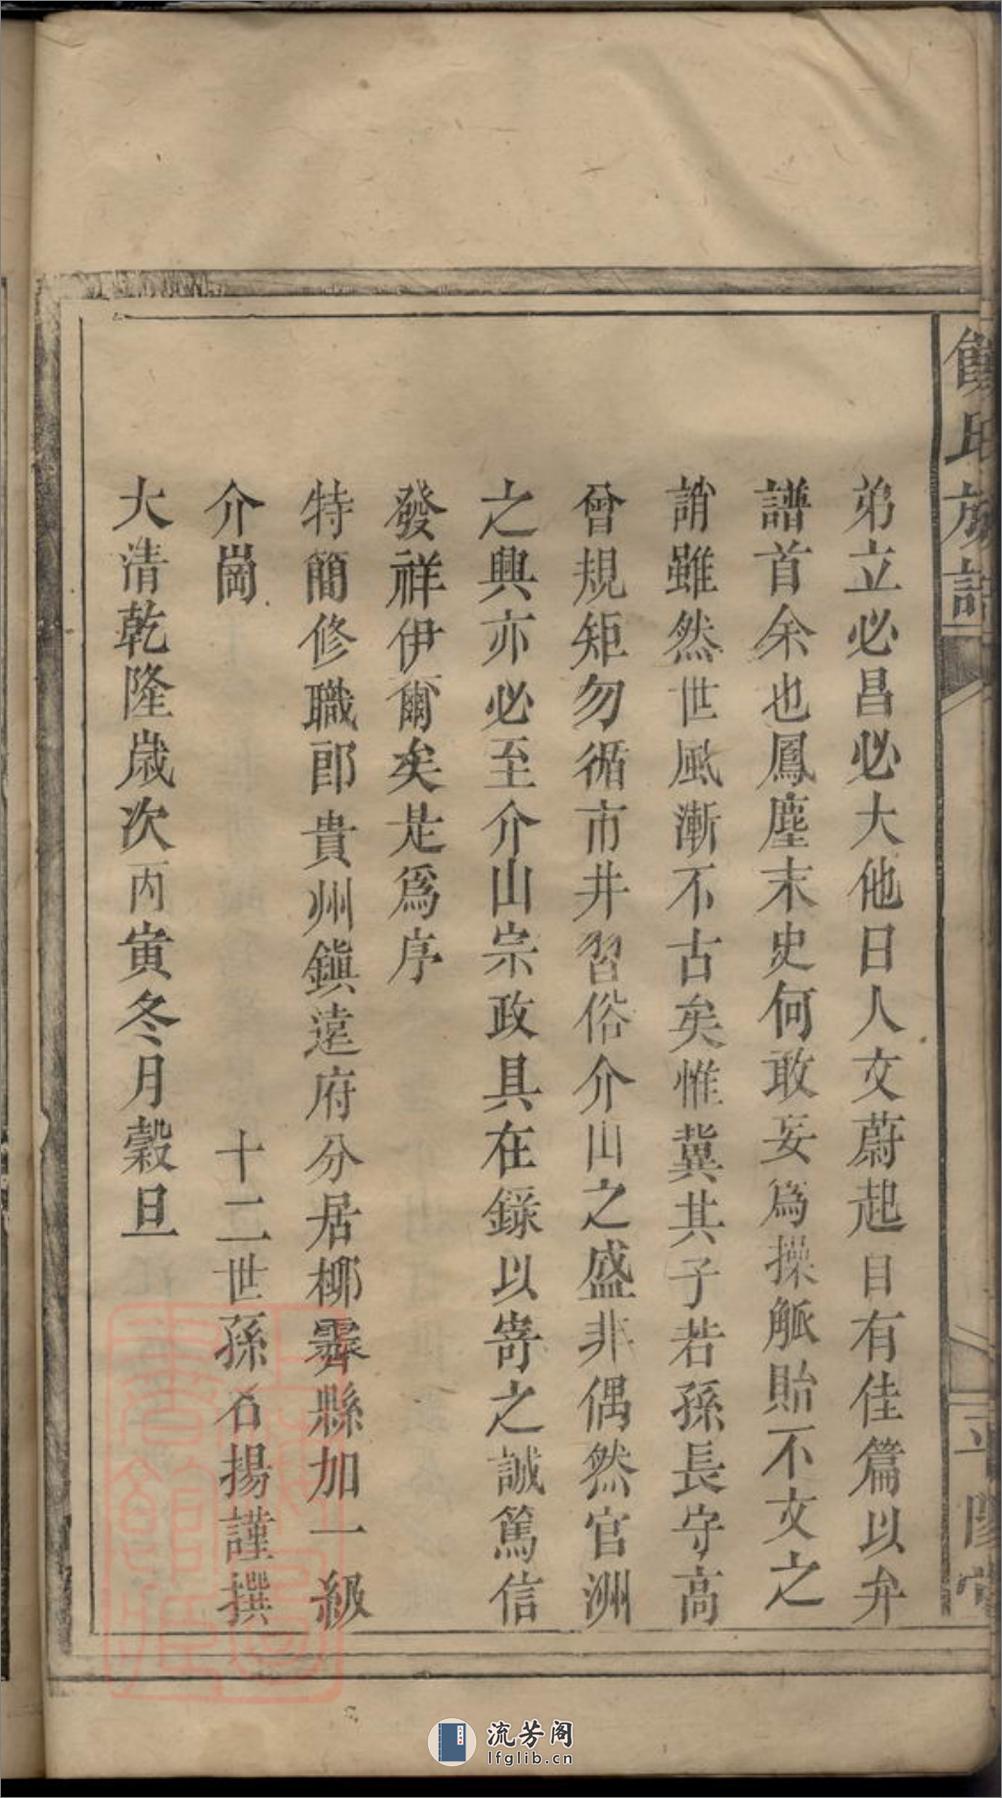 弟立必昌必大他日人文蔚起自有佳篇以弁
譜首余也鳳塵末史何敢妄爲操觚貽不文之
誚雖然世風漸不古矣惟冀其子若孫長守高
曾規矩勿循市井習俗介山之盛非偶然官洲
之興亦必至介山宗政具在錄以寄之誠篤信
發祥伊爾矣是爲序
特簡修職郎貴州鎭遠府分居柳霽縣加一級
介崗　十二世孫名揚謹撰
大清乾隆歲次丙寅冬月穀旦
氏族譜
流芳阁
lfglib.cn